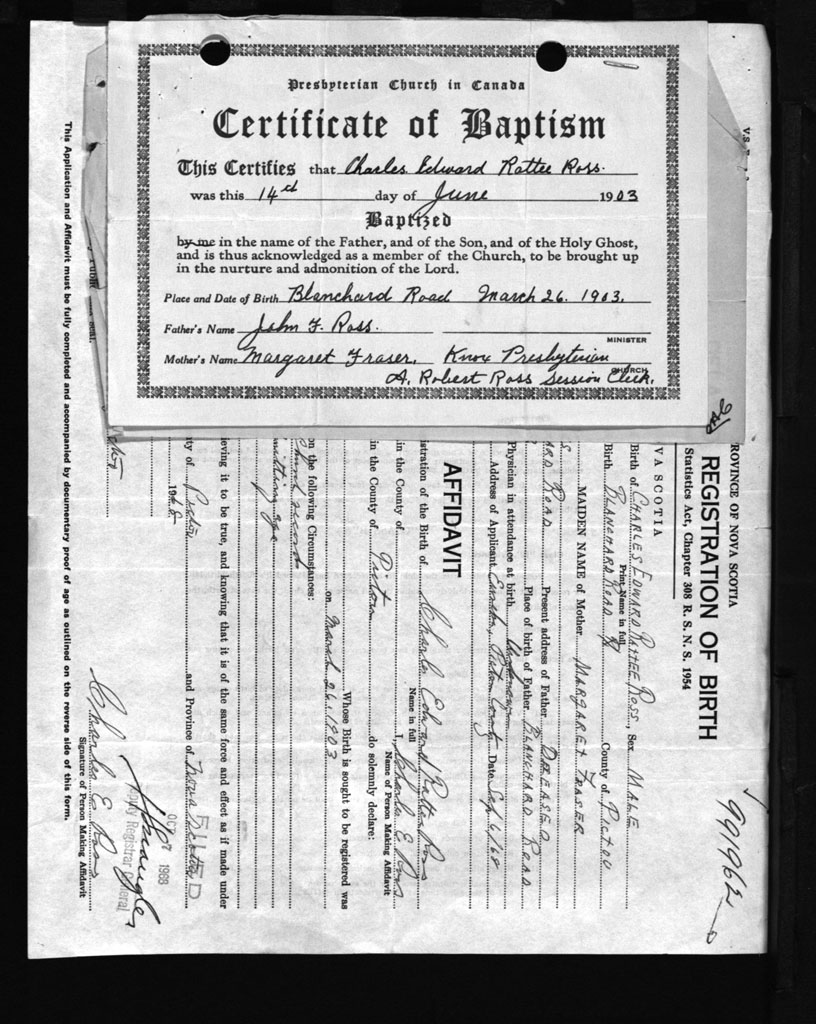 Presbyterian Church in Canada
Certificate of Baptism
This Certifies that Charles Edward Rattee Ross.
was this 14th day of June 1903
Baptized
by me in the name of the Father, and of the Son, and of the Holy Ghost,
and is thus acknowledged as a member of the Church, to be brought up
in the nurture and admonition of the Lord.
Place and Date of Birth Blanchard Road March 26. 1903.
Father's Name John F. Ross.
MINISTER
Mother's Name Margaret Fraser. Knox Presbyterian
CHURCH
A. Robert Ross Session Clerk.
991962
ROVINCE OF NOVA SCOTIA
REGISTRATION OF BIRTH
Statistics Act, Chapter 308 R. S. N. S. 1954
VA SCOTIA
Birth of CHARLES EDWARD RATTEE ROSS, Sex MALE
Print Name in full
Birth BLANCHARD ROAD County of PICTOU
MAIDEN NAME of Mother MARGARET FRASER
ARD ROAD Present address of Father DECEASED
Place of birth of Father BLANCHARD ROAD
Physician in attendance at birth
Address of Applicant Pictou County Date Sep 6/68
AFFIDAVIT
istration of the Birth of Charles Edward Rattee Ross
Name in full
in the County of I, Charles E Ross
Name of Person Making Affidavit
in the County of Pictou do solemnly declare:
Whose Birth is sought to be registered was
on March 26, 1903
on the following Circumstances:
ieving it to be true, and knowing that it is of the same force and effect as if made under
ty of Pictou and Province of Nova Scotia
1968
FILED
OCT 7 1968
Deputy Registrar General
Charles E Ross
Signature of Person Making Affidavit
This Application and Affidavit must be fully completed and accompanied by documentary proof of age as outlined on the reverse side of this form.